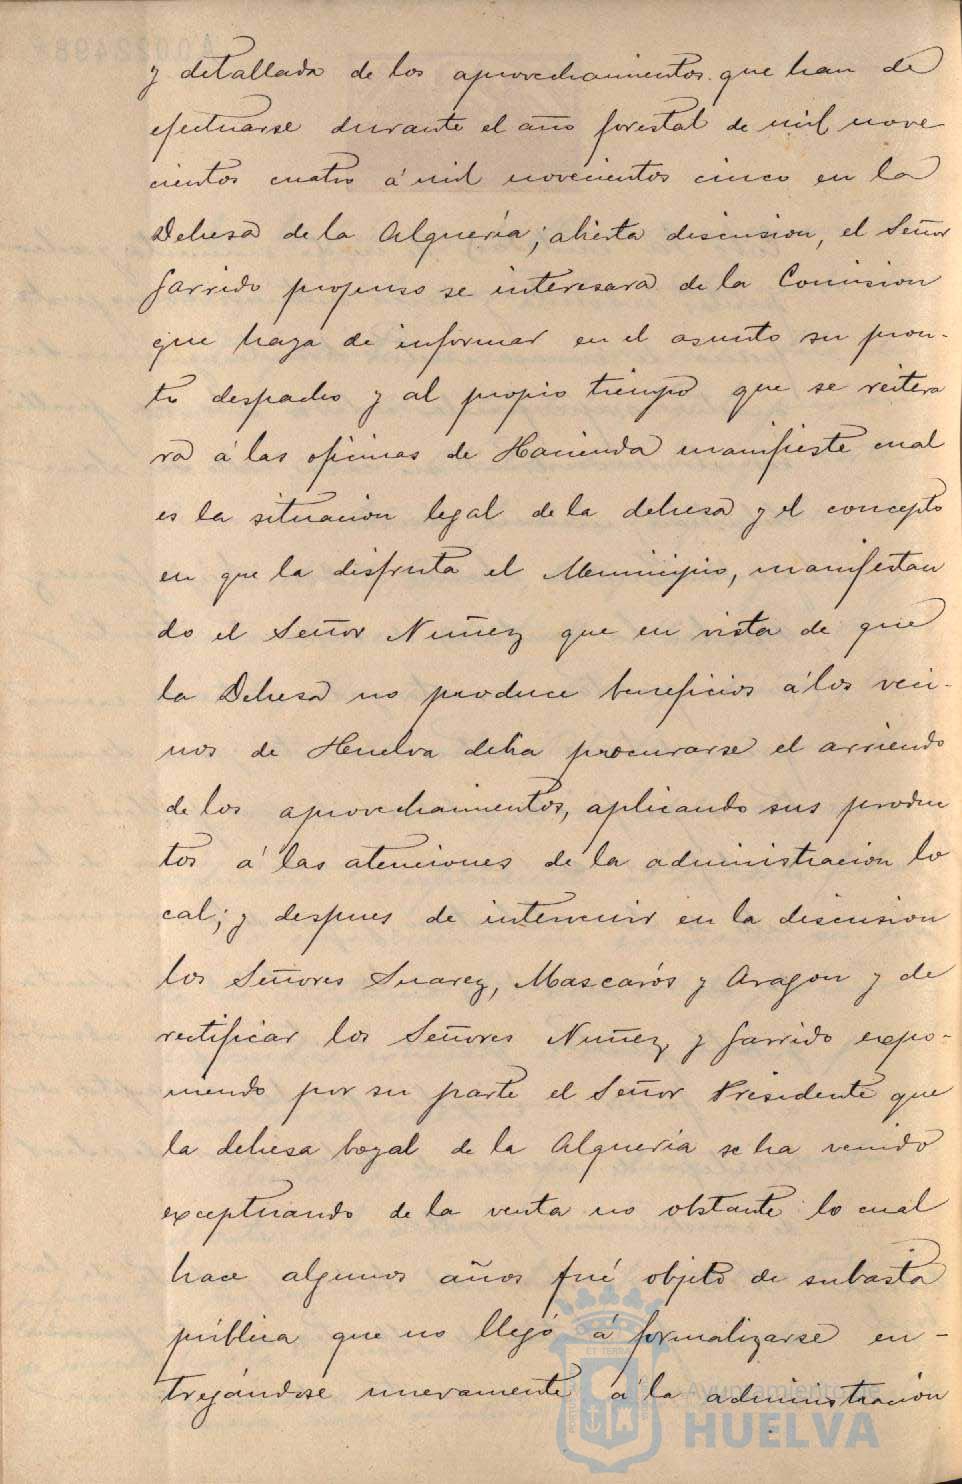 y detallada de los aprovechamientos que han de
efectuarse durante el año forestal de mil nove
cientos cuatro á mil novecientos cinco en la
Dehesa de la Alqueria; abierta discusion, el Señor
Garrido propuso se interesara de la Comision
que haya de informar en el asunto su pron-
to despacho y al propio tiempo que se reitera
ra á las oficinas de Hacienda manifieste cual
es la situacion legal de la dehesa y el concepto
en que la disfruta el Municipio, manifestan
do el Señor Nuñez que en vista de que
la Dehesa no produce beneficios á los veci-
nos de Huelva debia procurarse el arriendo
de los aprovechamientos, aplicando sus produc
tos á las atenciones de la administracion lo
cal; y despues de intervenir en la discusion
los Señores Suarez, Mascarós y Aragon y de
rectificar los Señores Nuñez y Garrido expo-
niendo por su parte el Señor Presidente que
la dehesa boyal de la Alqueria se ha venido
exceptuando de la venta no obstante lo cual
hace algunos años fué objeto de subasta
pública que no llegó á formalizarse en-
tregándose nuevamente á la administración
Ayuntamiento de
HUELVA